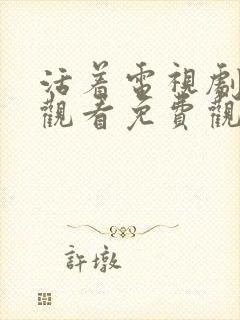 活着電視劇
觀看免費觀
許墩